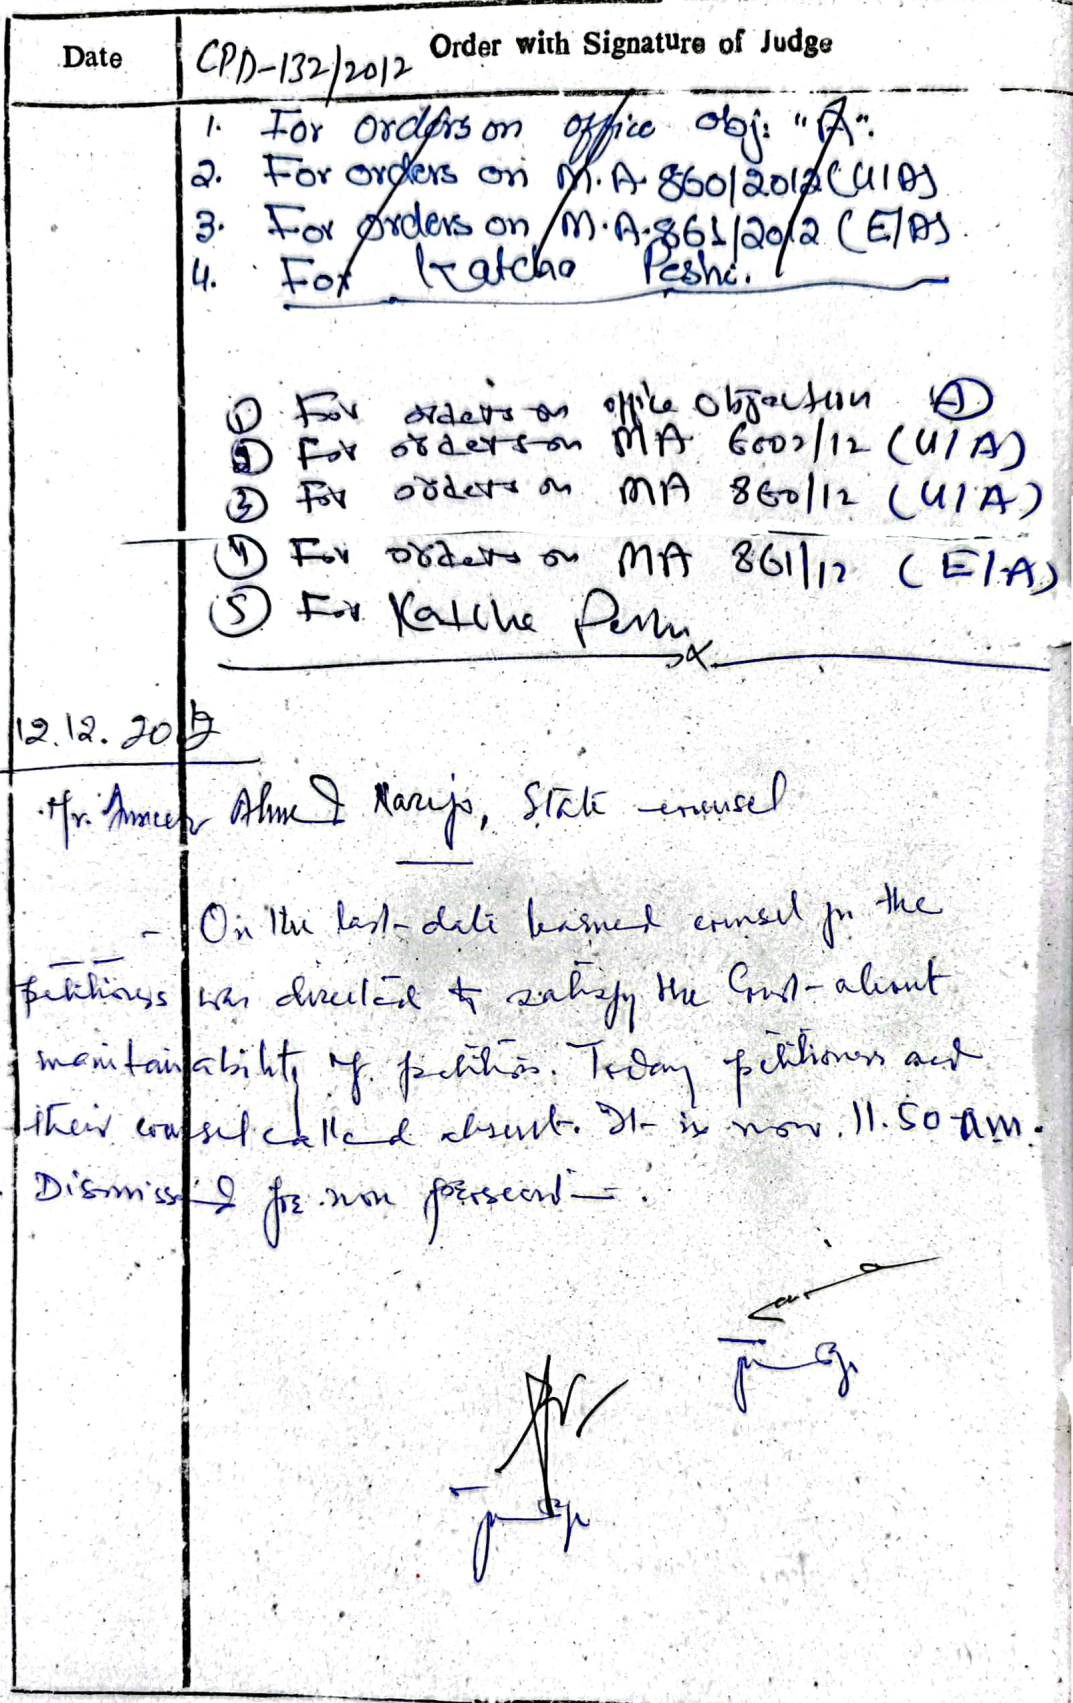 Date
Order with Signature of Judge
CPD-132/2012
1. For orders on office obj: "A".
2. For orders on M.A. 860/2012 (U/A)
3. For orders on M.A. 861/2012 (E/A)
4. For Katcha Peshi.
① For orders on office objection Ⓐ
② For orders on MA 6602/12 (U/A)
③ For orders on MA 860/12 (U/A)
④ For orders on MA 861/12 (E/A)
⑤ For Katcha Peshi
12.12.2012
Mr. Ameer Ahmed Narejo, State counsel
- On the last date learned counsel for the
petitioners was directed to satisfy the Court about
maintainability of petition. Today petitioners and
their counsel called absent. It is now 11.50 am.
Dismissed for non
Judge
Judge